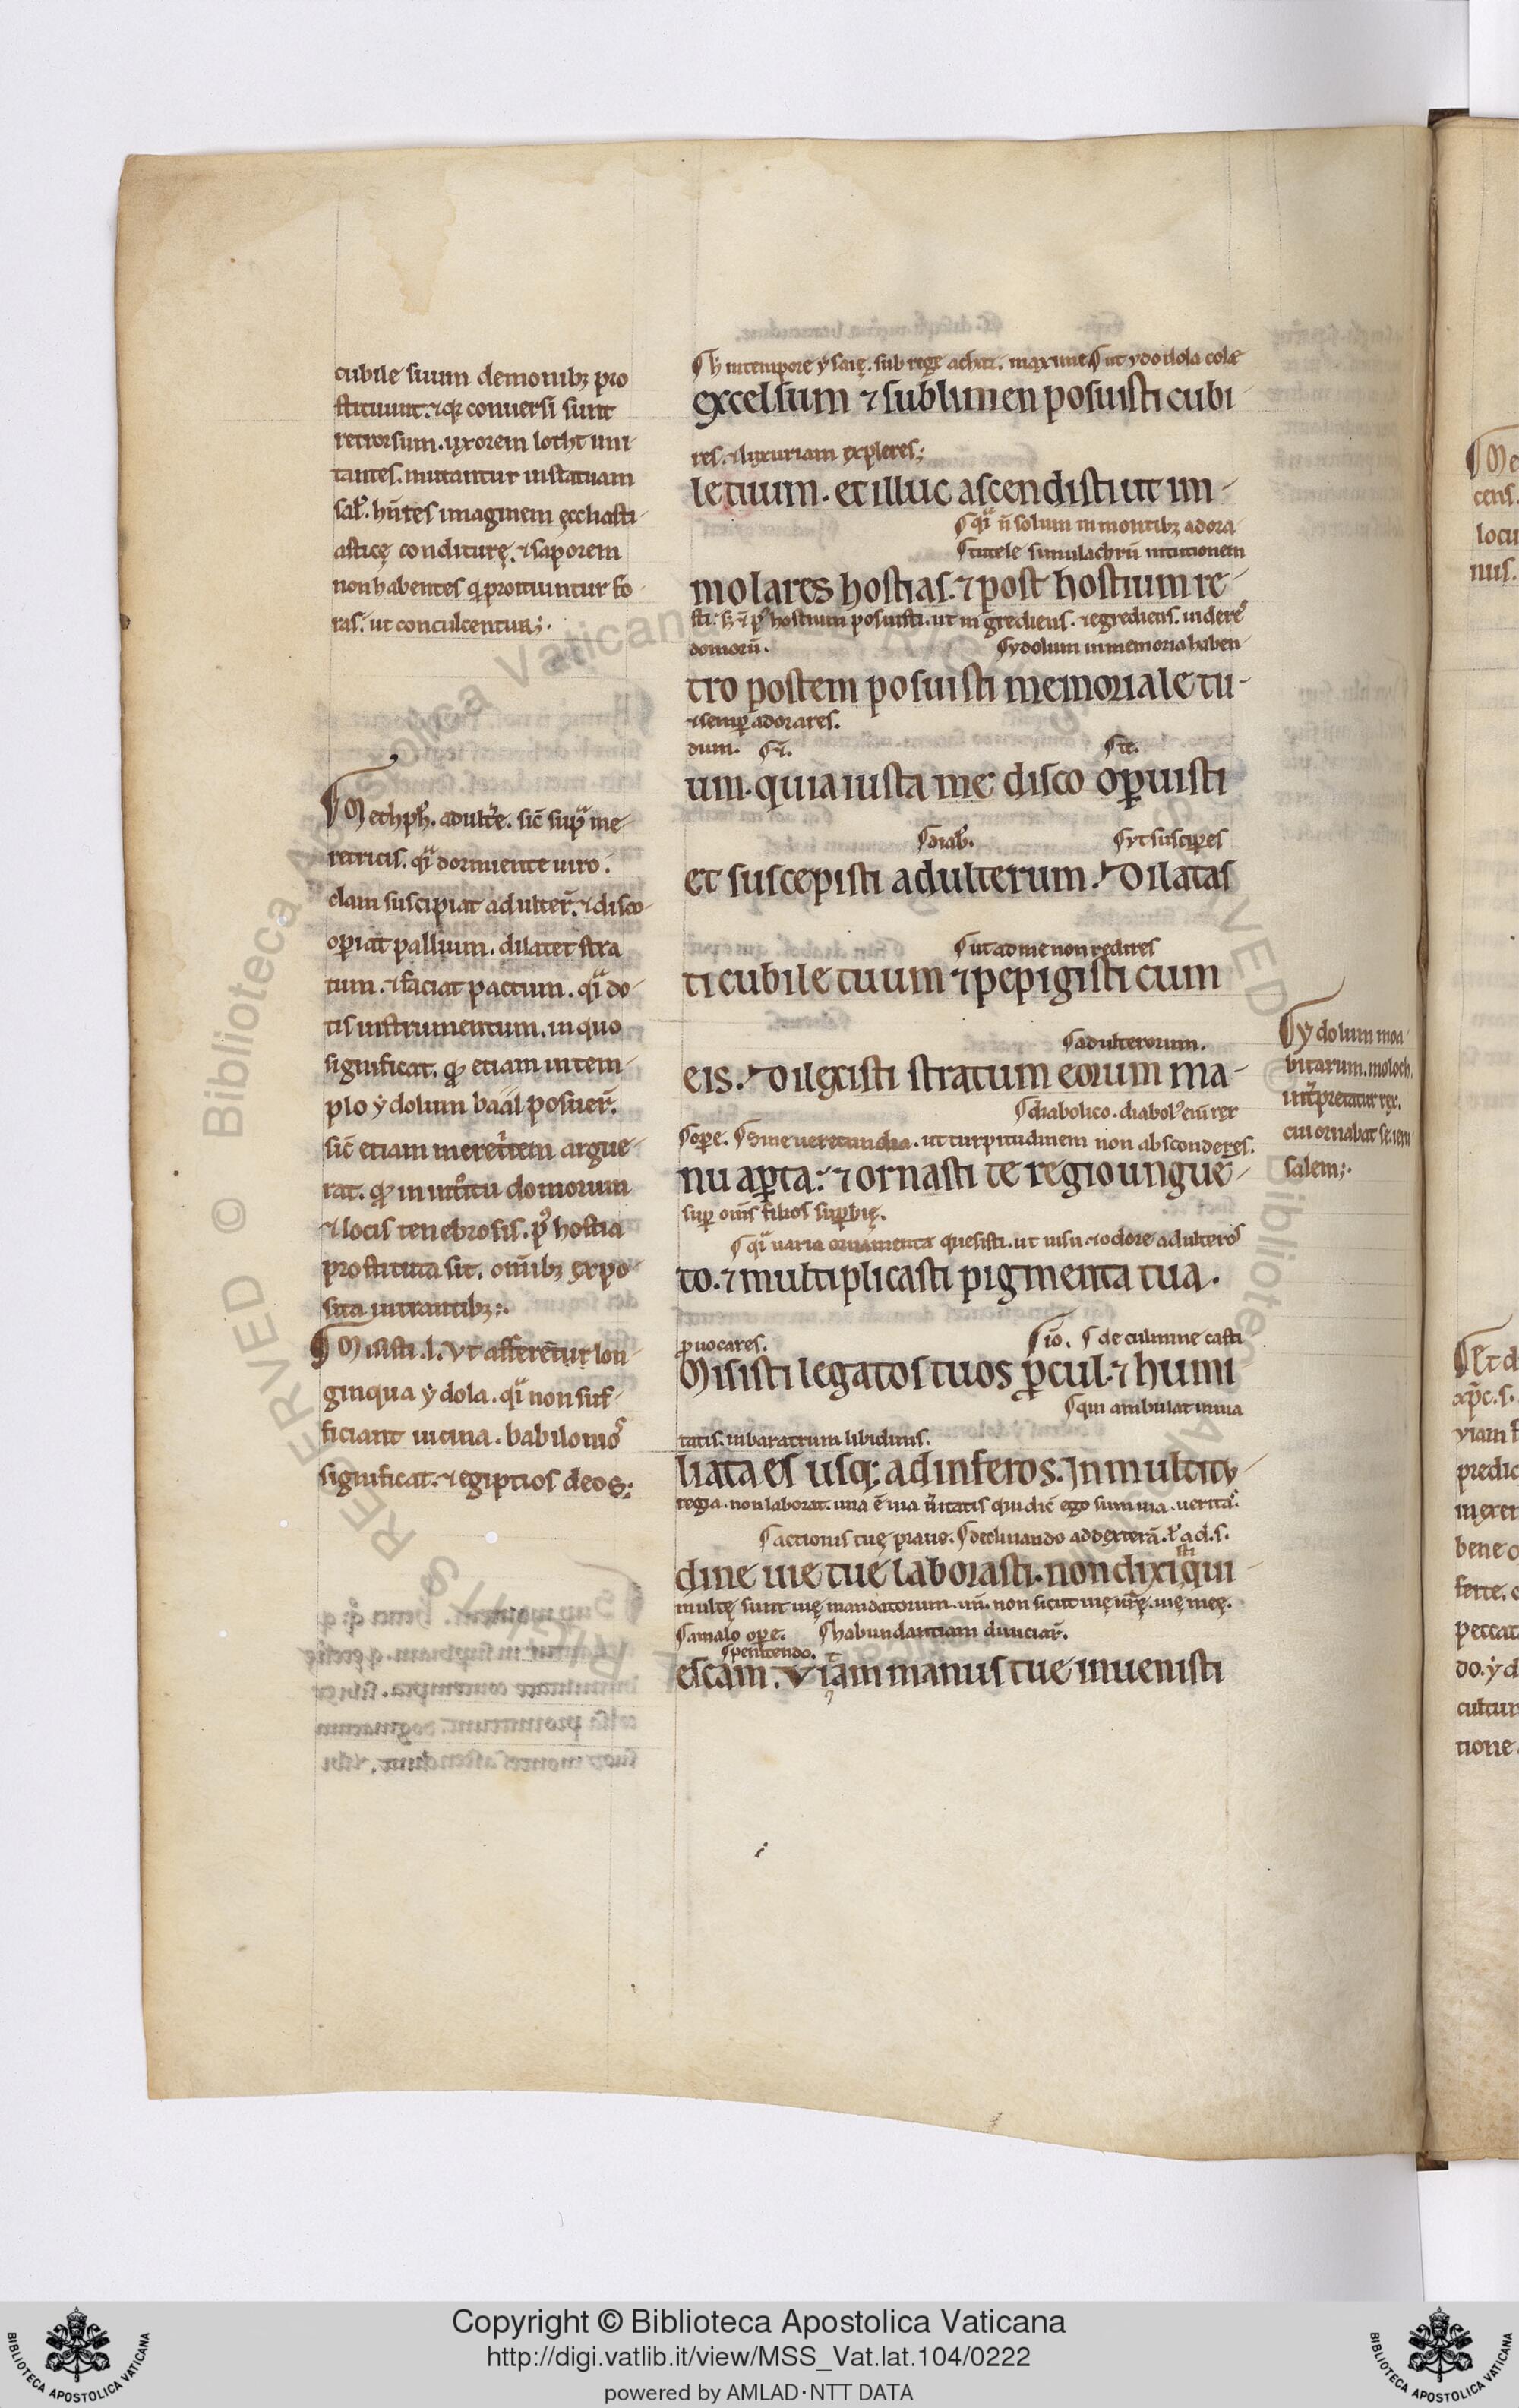 cubile suum demonibꝫ pro
stituunt. ⁊ qꝛ conuersi sunt
retrorsum. uxorem loth imi
tantes. mutantur in statuam
salˢ. hñtes imaginem ęcclȩsi
asticę conditurę. ⁊ saporem
non habentes q̇ proitiuntur fo
ras. ut conculcentur;.
Metaphˢ. adulte. sic̄ supᵃ me
retricis. qͣi dormiente uiro.
clam suscipiat adulter̄. ⁊ disco
opiat pallium. dilatet stra
tum. ⁊ faciat pactum. qͣi do
tis instrumentum. in quo
significat. qđ etiam in tem
plo ydolum baal posuer̄.
sic̄ etiam meret̄cem argue
rat. qđ in int̄itu domorum
⁊ locis tenebrosis. pꝰ hostia
prostituta sit. om̄ibꝫ expo
sita intrantibꝫ;.
Misisti .l. Vt afferent̄ur lon
ginqua ydola. qͣi non suf
ficiant uicina. babilonioꝰ
significat. ⁊ egiptios deos;.
h̄ in tempore ysaię. sub rege achaz. maxime ut ydola cole
excelsum ⁊ sublimen posuisti cubi
res. ⁊ luxuriam expleres;
le tuum. et illuc ascendisti ut im
qͣi n̄ solum in montibꝫ adora
tutele simulachrū intutionem
molares hostias. ⁊ post hostium re
sti. sꝫ ⁊ pꝰ hostium posuisti. ut ingrediens. ⁊ egrediens. uideres
domorū.
ydolum in memoria haben
tro postem posuisti memoriale tu
⁊ semꝑ adorares.
dum.
te.
um. quia iuxta me disco oꝑuisti
diab.
ut susciꝑes
et suscepisti adulterum. Dilatas
ut ad me non redires
ti cubile tuum ⁊ pepigisti cum
adulterorum.
eis. Dilexisti stratum eorum ma
diabolico. diabolꝰ eni rex
oꝑe. sine uerecundia. ut turpitudinem non absconderes.
nu aꝑta. ⁊ ornasti te regio unguē
suꝑ om̄s filios suꝑbię.
qͣi uaria ornamenta quesisti. ut uisu ⁊ odore adulteros
to. ⁊ multiplicasti pigmenta tua.
ꝓuocares.
io.
de culmine casti
Misisti legatos tuos ꝓcul. ⁊ humi
qui ambulat in uia
tatis. in baratrum libidinis.
liata es usqꝫ ad inferos. In multitu
regia. non laborat. una ē uia u̇itatis qui dic̄ ego sum uia. ueritas.
actionis tuę praue. declinando ad dexterā. ł ad .s.
dine uie tue laborasti. non dixisti qui
multę sunt uię mandatorum. uñ. non sicut uię ur̄ę. uię meę.
a malo oꝑe.
habundantiam diuitiar̄.
penitendo.
escam. Viam manus tue inuenisti
ydolum moa
bitarum. moloch.
int̄pretatur rex.
cui ornabat se ieru
salem;.
Copyright © Biblioteca Apostolica Vaticana
http://digi.vatlib.it/view/MSS_Vat.lat.104/0222
powered by AMLAD·NTT DATA
BIBLIOTECA APOSTOLICA VATICANA
BIBLIOTECA APOSTOLICA VATICANA